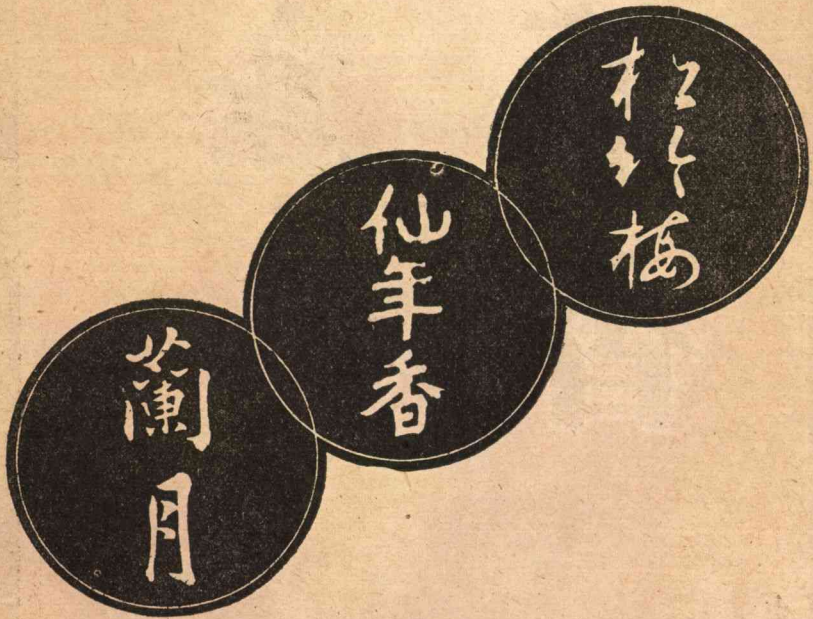 松竹梅
仙年香
蘭月